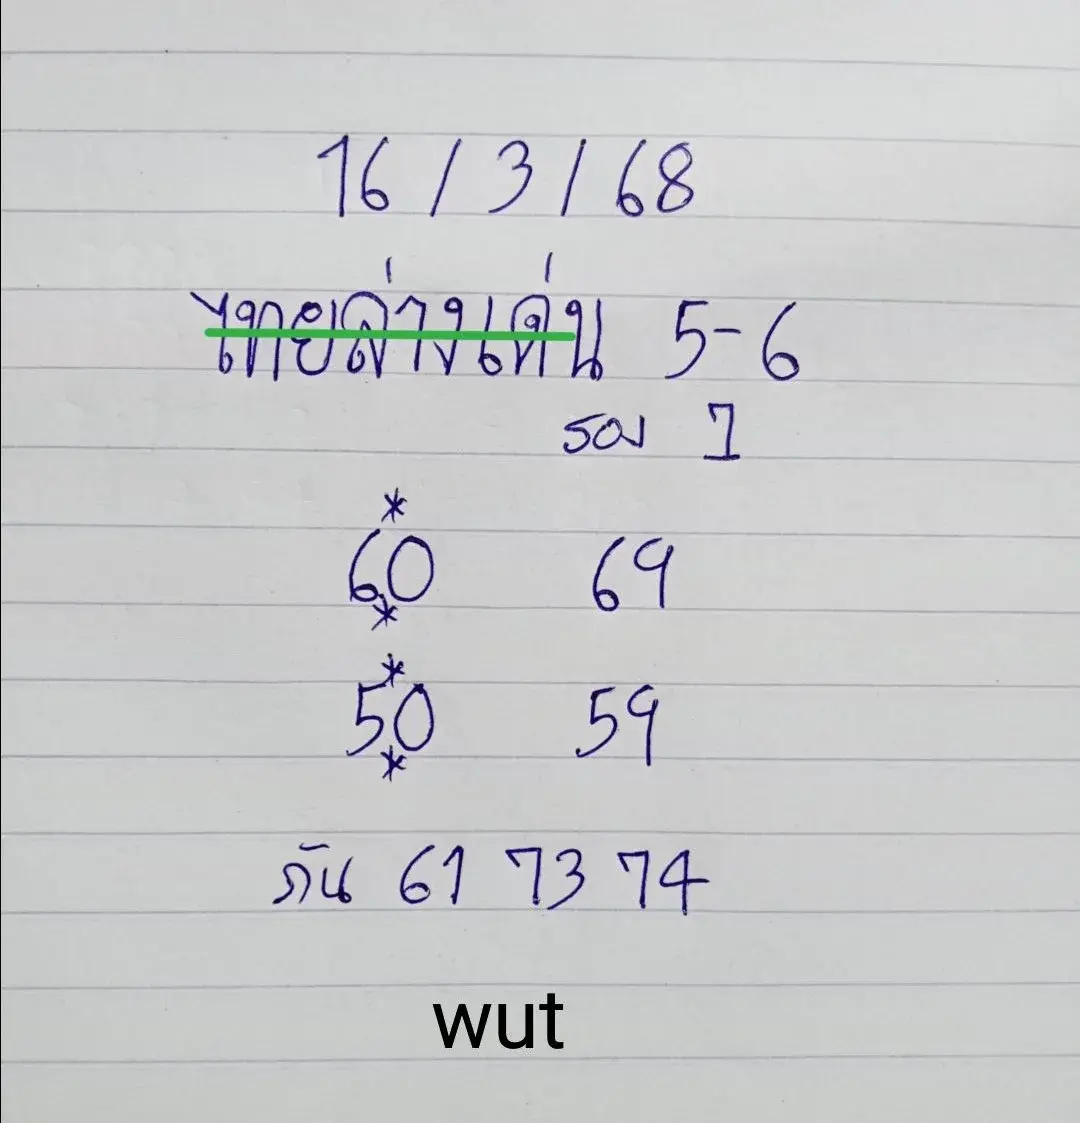 16 / 3 / 68
ไทยล่างเด่น 5-6
รอง 1
*
60 69
*
*
50 59
*
กัน 61 73 74
wut